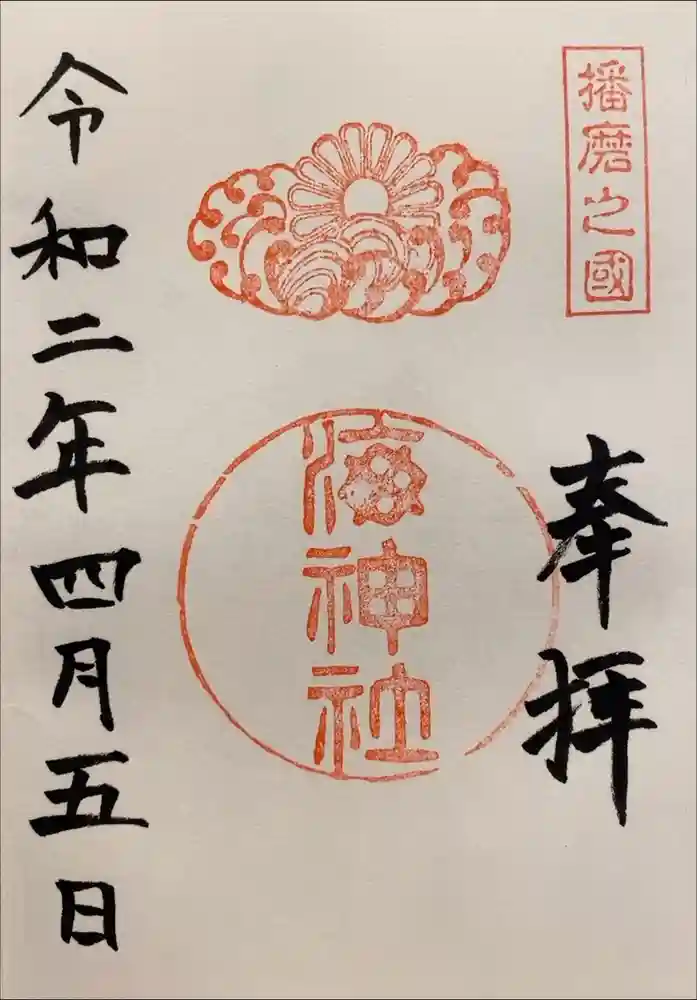 播磨之國
奉拝
海神社
令和二年四月五日